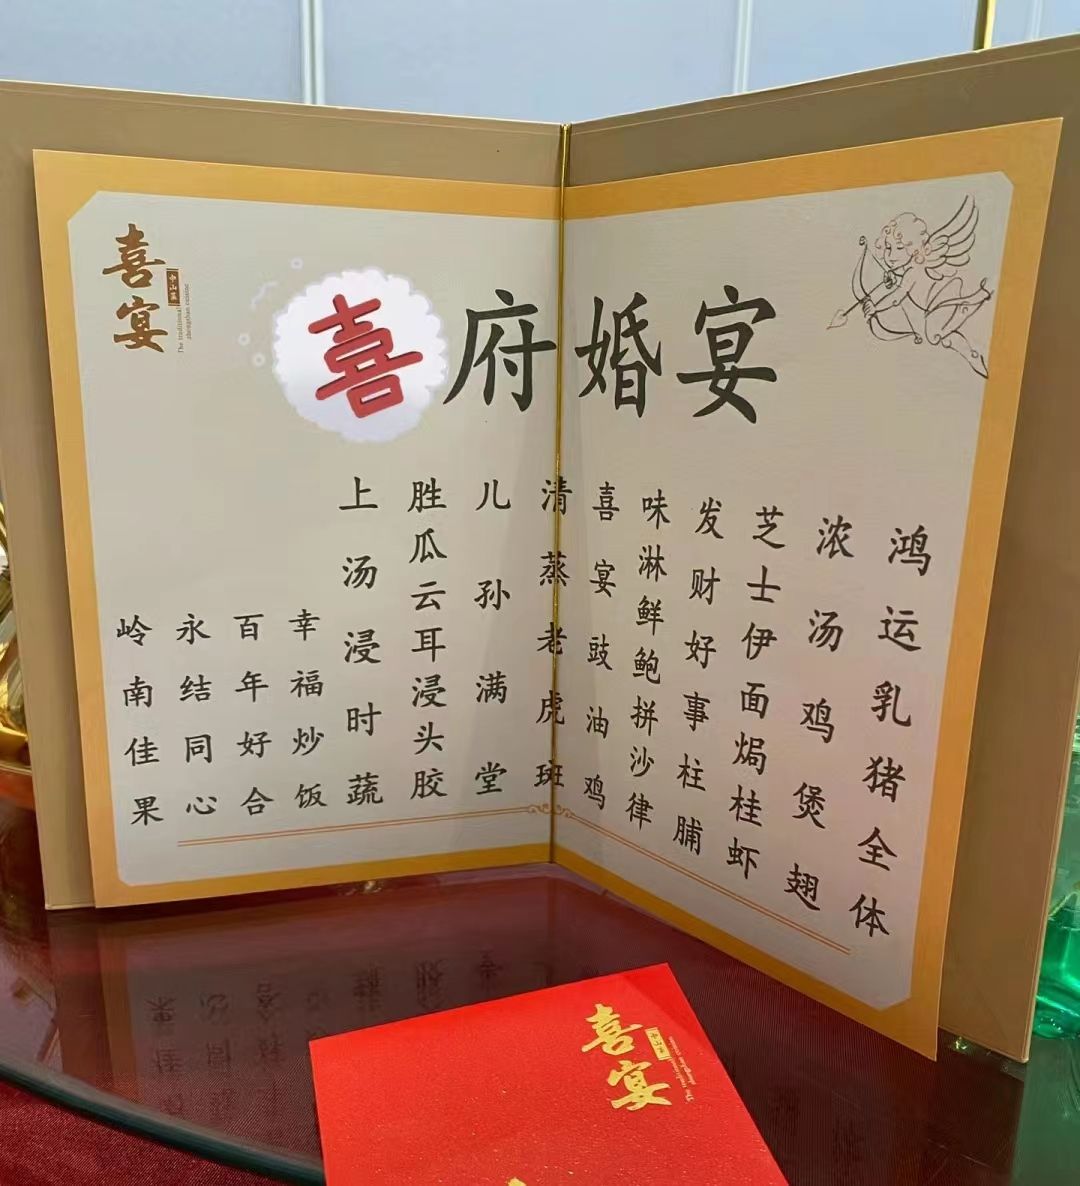 喜宴
中山菜
The traditional
zhongshan cuisine
喜府婚宴
鸿运乳猪全体
浓汤鸡煲翅
芝士伊面焗桂虾
发财好事柱脯
味淋鲜鲍拼沙律
喜宴豉油鸡
清蒸老虎斑
儿孙满堂
胜瓜云耳浸头胶
上汤浸时蔬
幸福炒饭
百年好合
永结同心
岭南佳果
喜宴
中山菜
The traditional
zhongshan cuisine